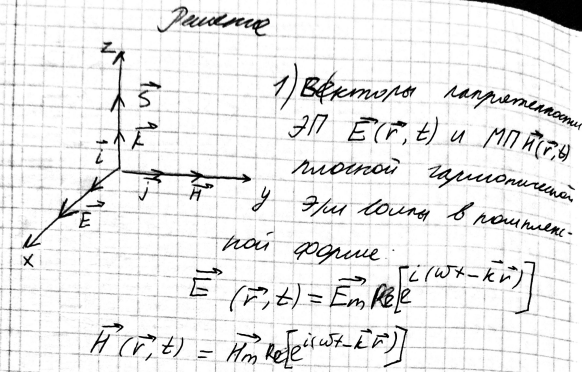 Решение
z
S⃗
k⃗
i⃗
j⃗ H⃗
y
E⃗
x
1) Векторы напряженности
ЭП E⃗(r⃗,t) и МП H⃗(r⃗,t)
плоской гармонической
э/м волны в комплекс-
ной форме.
E⃗ (r⃗,t) = E⃗m Re[e^{i(ωt-k⃗r⃗)}]
H⃗ (r⃗,t) = H⃗m Re[e^{i(ωt-k⃗r⃗)}]